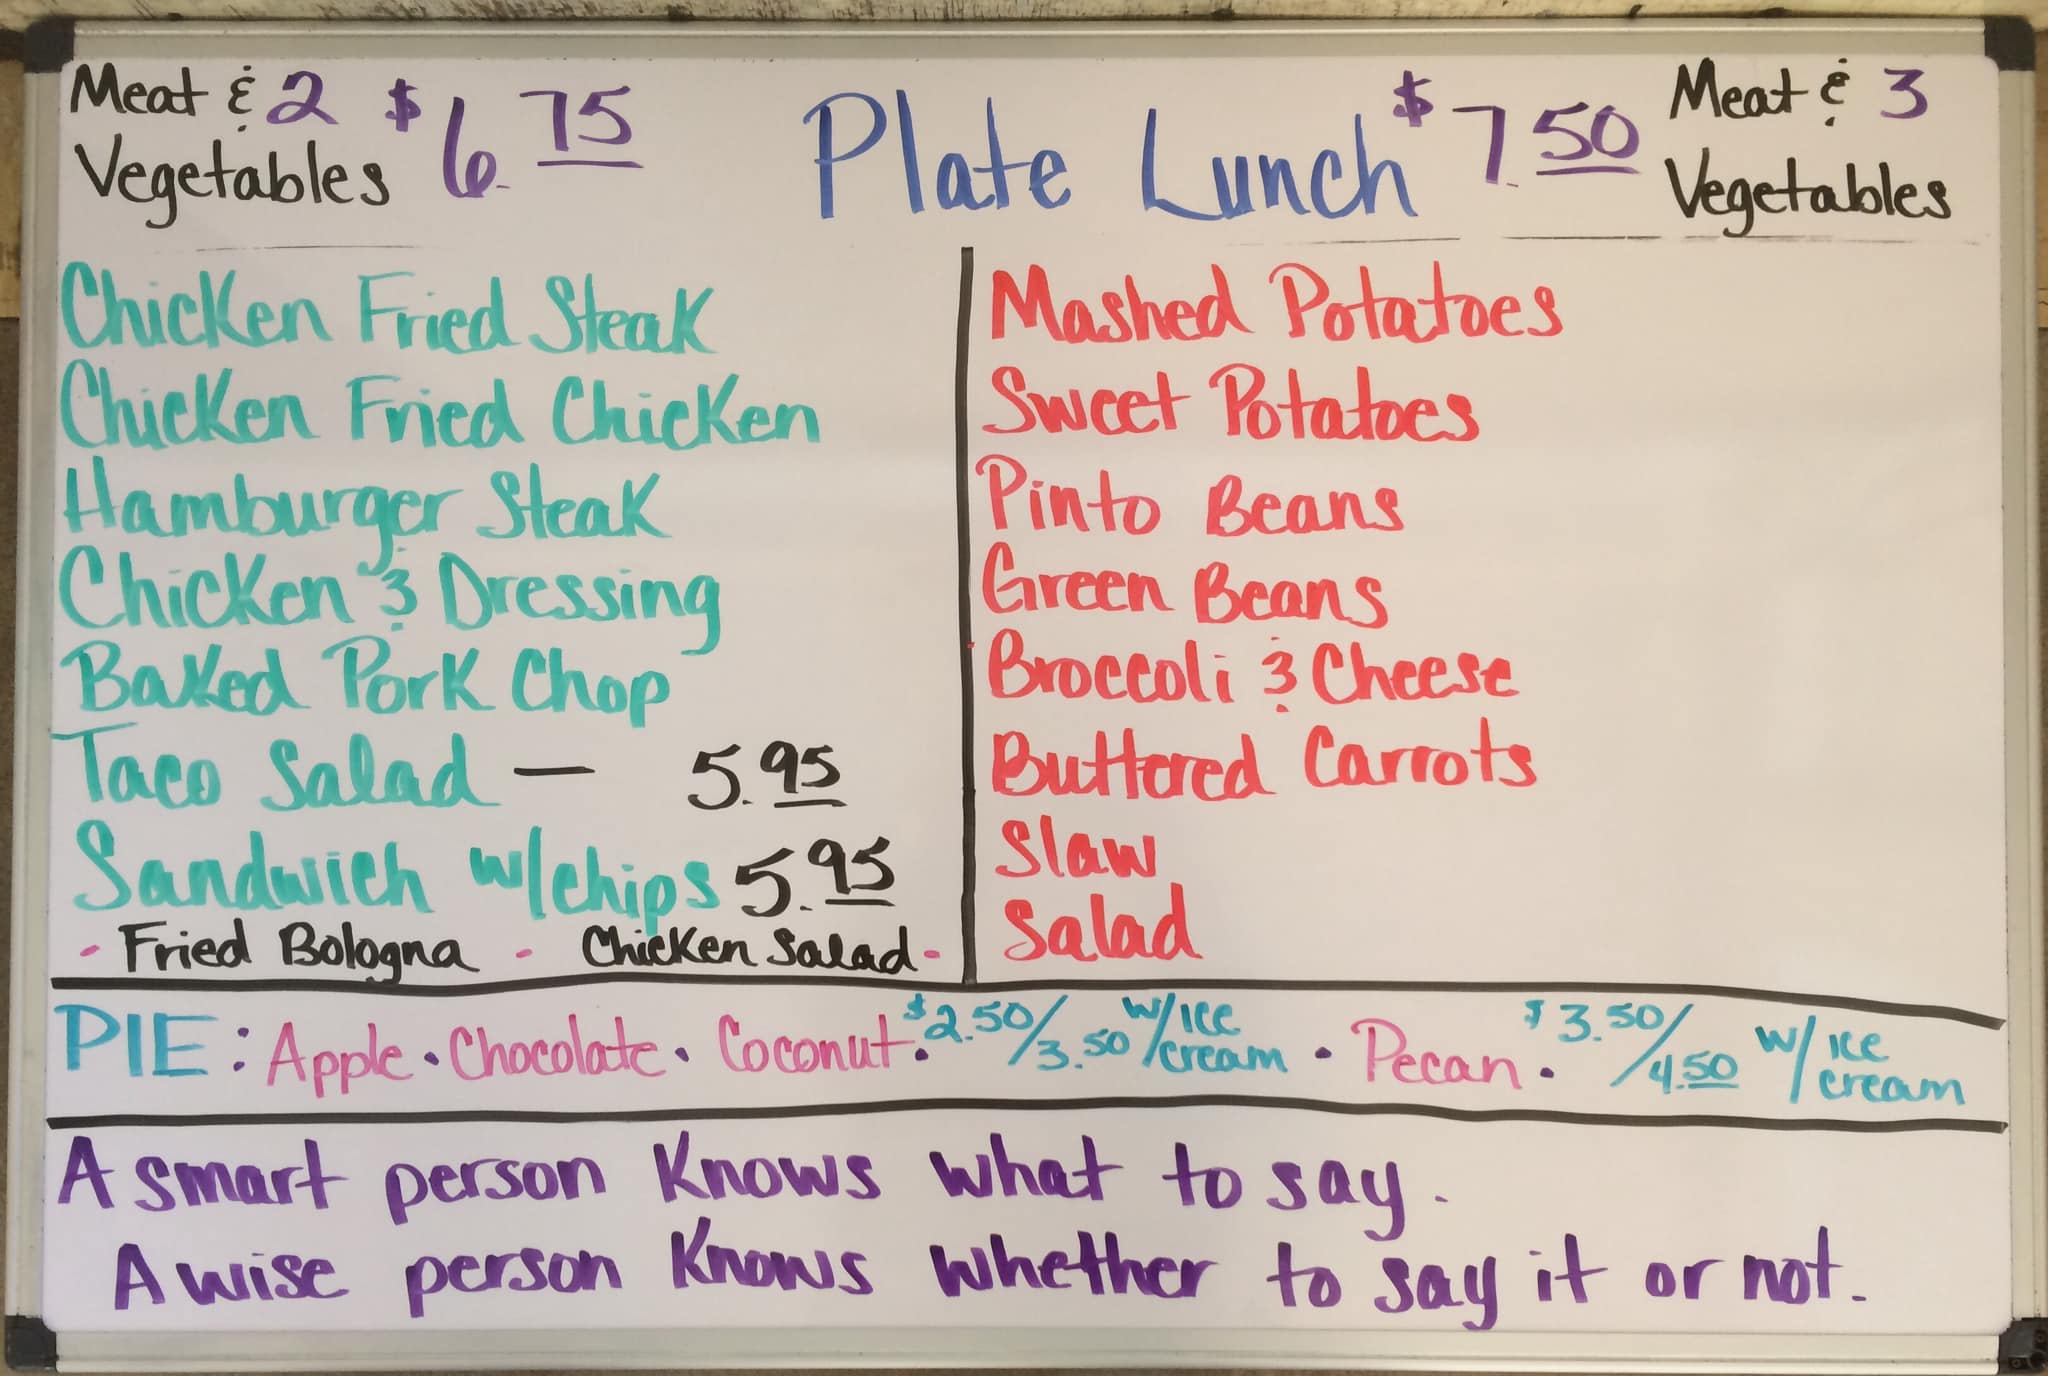 Meat & 2 Vegetables $6.75
Plate Lunch
$7.50 Meat & 3 Vegetables
Chicken Fried Steak
Chicken Fried Chicken
Hamburger Steak
Chicken & Dressing
Baked Pork Chop
Taco Salad — 5.95
Sandwich w/chips 5.95
- Fried Bologna - Chicken Salad -
Mashed Potatoes
Sweet Potatoes
Pinto Beans
Green Beans
Broccoli & Cheese
Buttered Carrots
Slaw
Salad
PIE: Apple • Chocolate • Coconut • $2.50/3.50 w/Ice cream • Pecan • $3.50/4.50 w/Ice cream
A smart person knows what to say.
A wise person knows whether to say it or not.